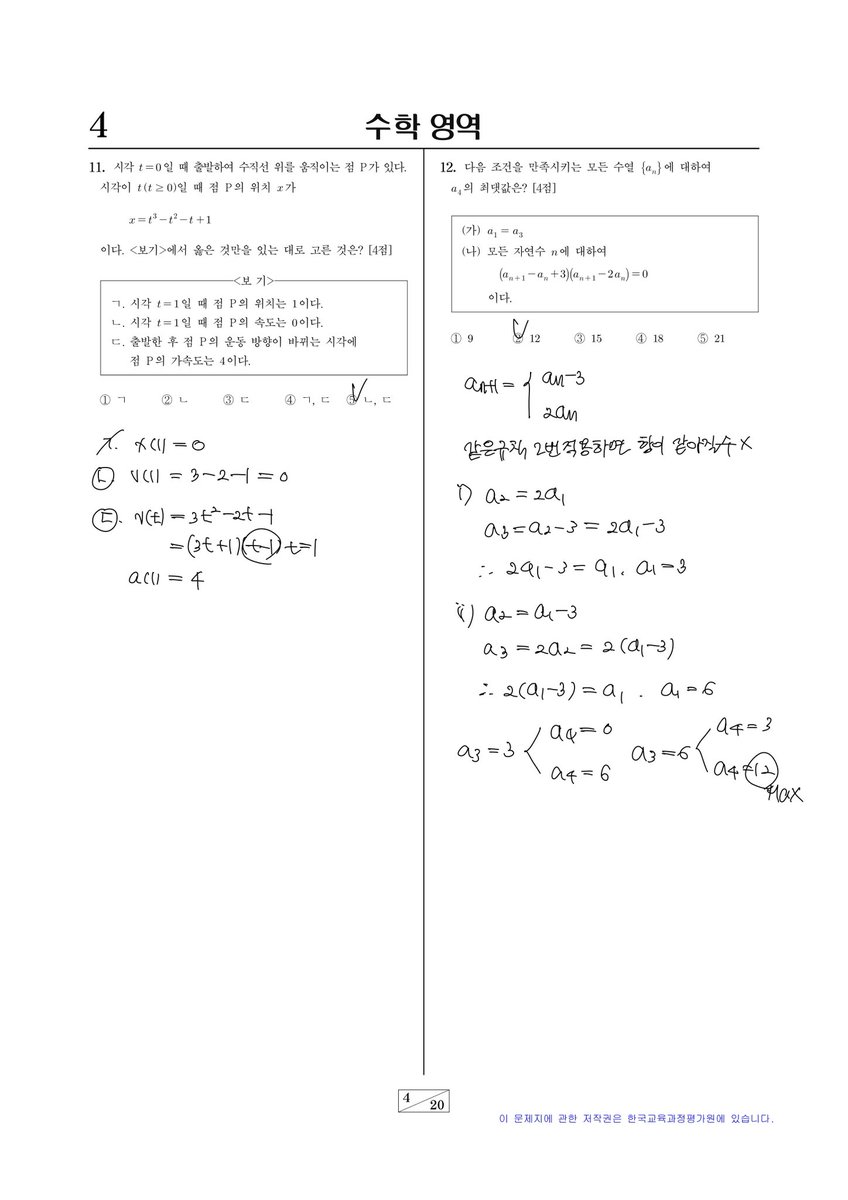 4
수학 영역
11. 시각 t=0일 때 출발하여 수직선 위를 움직이는 점 P가 있다.
시각이 t(t≥0)일 때 점 P의 위치 x가
x=t³-t²-t+1
이다. <보기>에서 옳은 것만을 있는 대로 고른 것은? [4점]
<보 기>
ㄱ. 시각 t=1일 때 점 P의 위치는 1이다.
ㄴ. 시각 t=1일 때 점 P의 속도는 0이다.
ㄷ. 출발한 후 점 P의 운동 방향이 바뀌는 시각에
점 P의 가속도는 4이다.
① ㄱ ② ㄴ ③ ㄷ ④ ㄱ, ㄷ ⑤ ㄴ, ㄷ
ㄱ. x(1) = 0
ㄴ v(1) = 3-2-1 = 0
ㄷ. v(t) = 3t²-2t-1
= (3t+1)(t-1) t=1
a(1) = 4
12. 다음 조건을 만족시키는 모든 수열 {aₙ}에 대하여
a₄의 최댓값은? [4점]
(가) a₁=a₃
(나) 모든 자연수 n에 대하여
(aₙ₊₁-aₙ+3)(aₙ₊₁-2aₙ)=0
이다.
① 9 ② 12 ③ 15 ④ 18 ⑤ 21
aₙ₊₁ = { aₙ-3
2aₙ
같은규칙 2번적용하면 항이 같아질수 X
i) a₂ = 2a₁
a₃=a₂-3 = 2a₁-3
∴ 2a₁-3 = a₁. a₁=3
ii) a₂=a₁-3
a₃ = 2a₂ = 2(a₁-3)
∴ 2(a₁-3) = a₁. a₁=6
a₃=3 < a₄=0 a₃=6 < a₄=3
a₄=6 a₄=12
Max
4
20
이 문제지에 관한 저작권은 한국교육과정평가원에 있습니다.